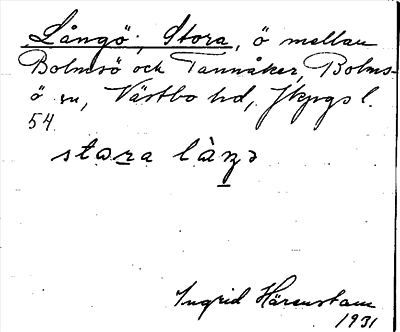 Långö, Stora, ö mellan
Bolmsö och Tannåker, Bolms-
ö sn, Västbo hd, Jkpgs l.
54.
stora làŋə
Ingrid Härenstam
1931